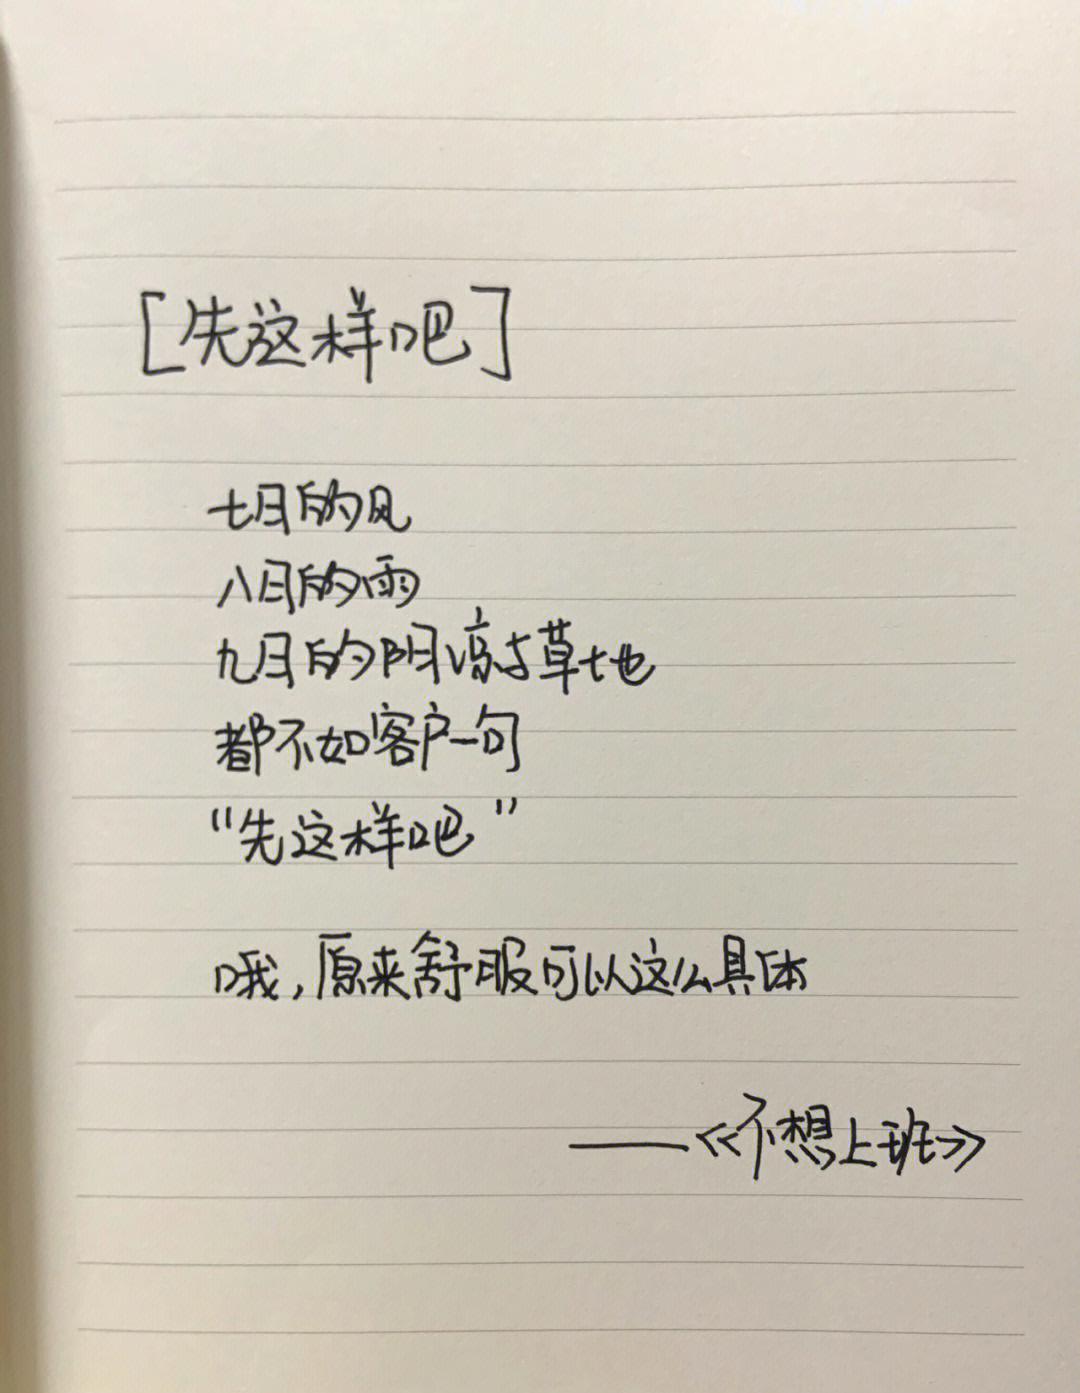 [先这样吧]
七月的风
八月的雨
九月的阴凉与草地
都不如客户一句
“先这样吧”
哦，原来舒服可以这么具体
——《不想上班》